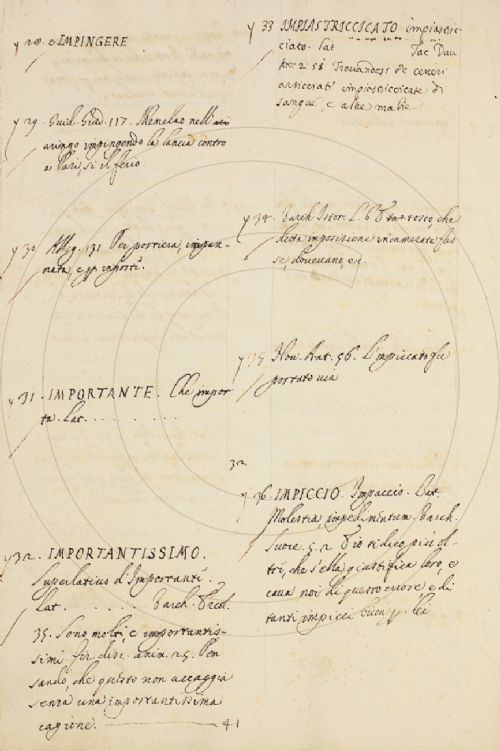 28. o IMPINGERE
29. Guid. Giud. 117. Menelao nell'
aringo impingendo la lancia contro
a Pari, si il ferio.
30 Alleg. 131 Per portiera, impan-
nata, e
31. IMPORTANTE. Che impor-
ta. Lat. . . . . . . . .
32. IMPORTANTISSIMO.
Superlativo d'Importante.
Lat. . . . . . Varch. Ercol.
35. Sono molti, e importantis-
simi. fir. disc. anim. 25. Pen
sando, che questo non accaggia
senza una importantissima
cagione. 41
33 IMPIASTRICCICATO impiastric-
ciato. lat Tac. Dav.
2. 58 Trovandosi &c ceneri
arsicciati impiastriccicate di
sangue, e altre malie
34. Varch. Stor. l. 6
detta imposizione incamerata fus
se, dovevano, ec.
35 Nov. Ant. 56. L'impiccato gli
portato via
32
36. IMPICCIO. Impaccio. Lat.
Molestia, impedimentum. Varch.
Suoc. 5. 2 E io ti dico più ol-
tre, che s'ella giustifica loro, e
cava noi di questo errore e di
tanti impicci buon p. lei